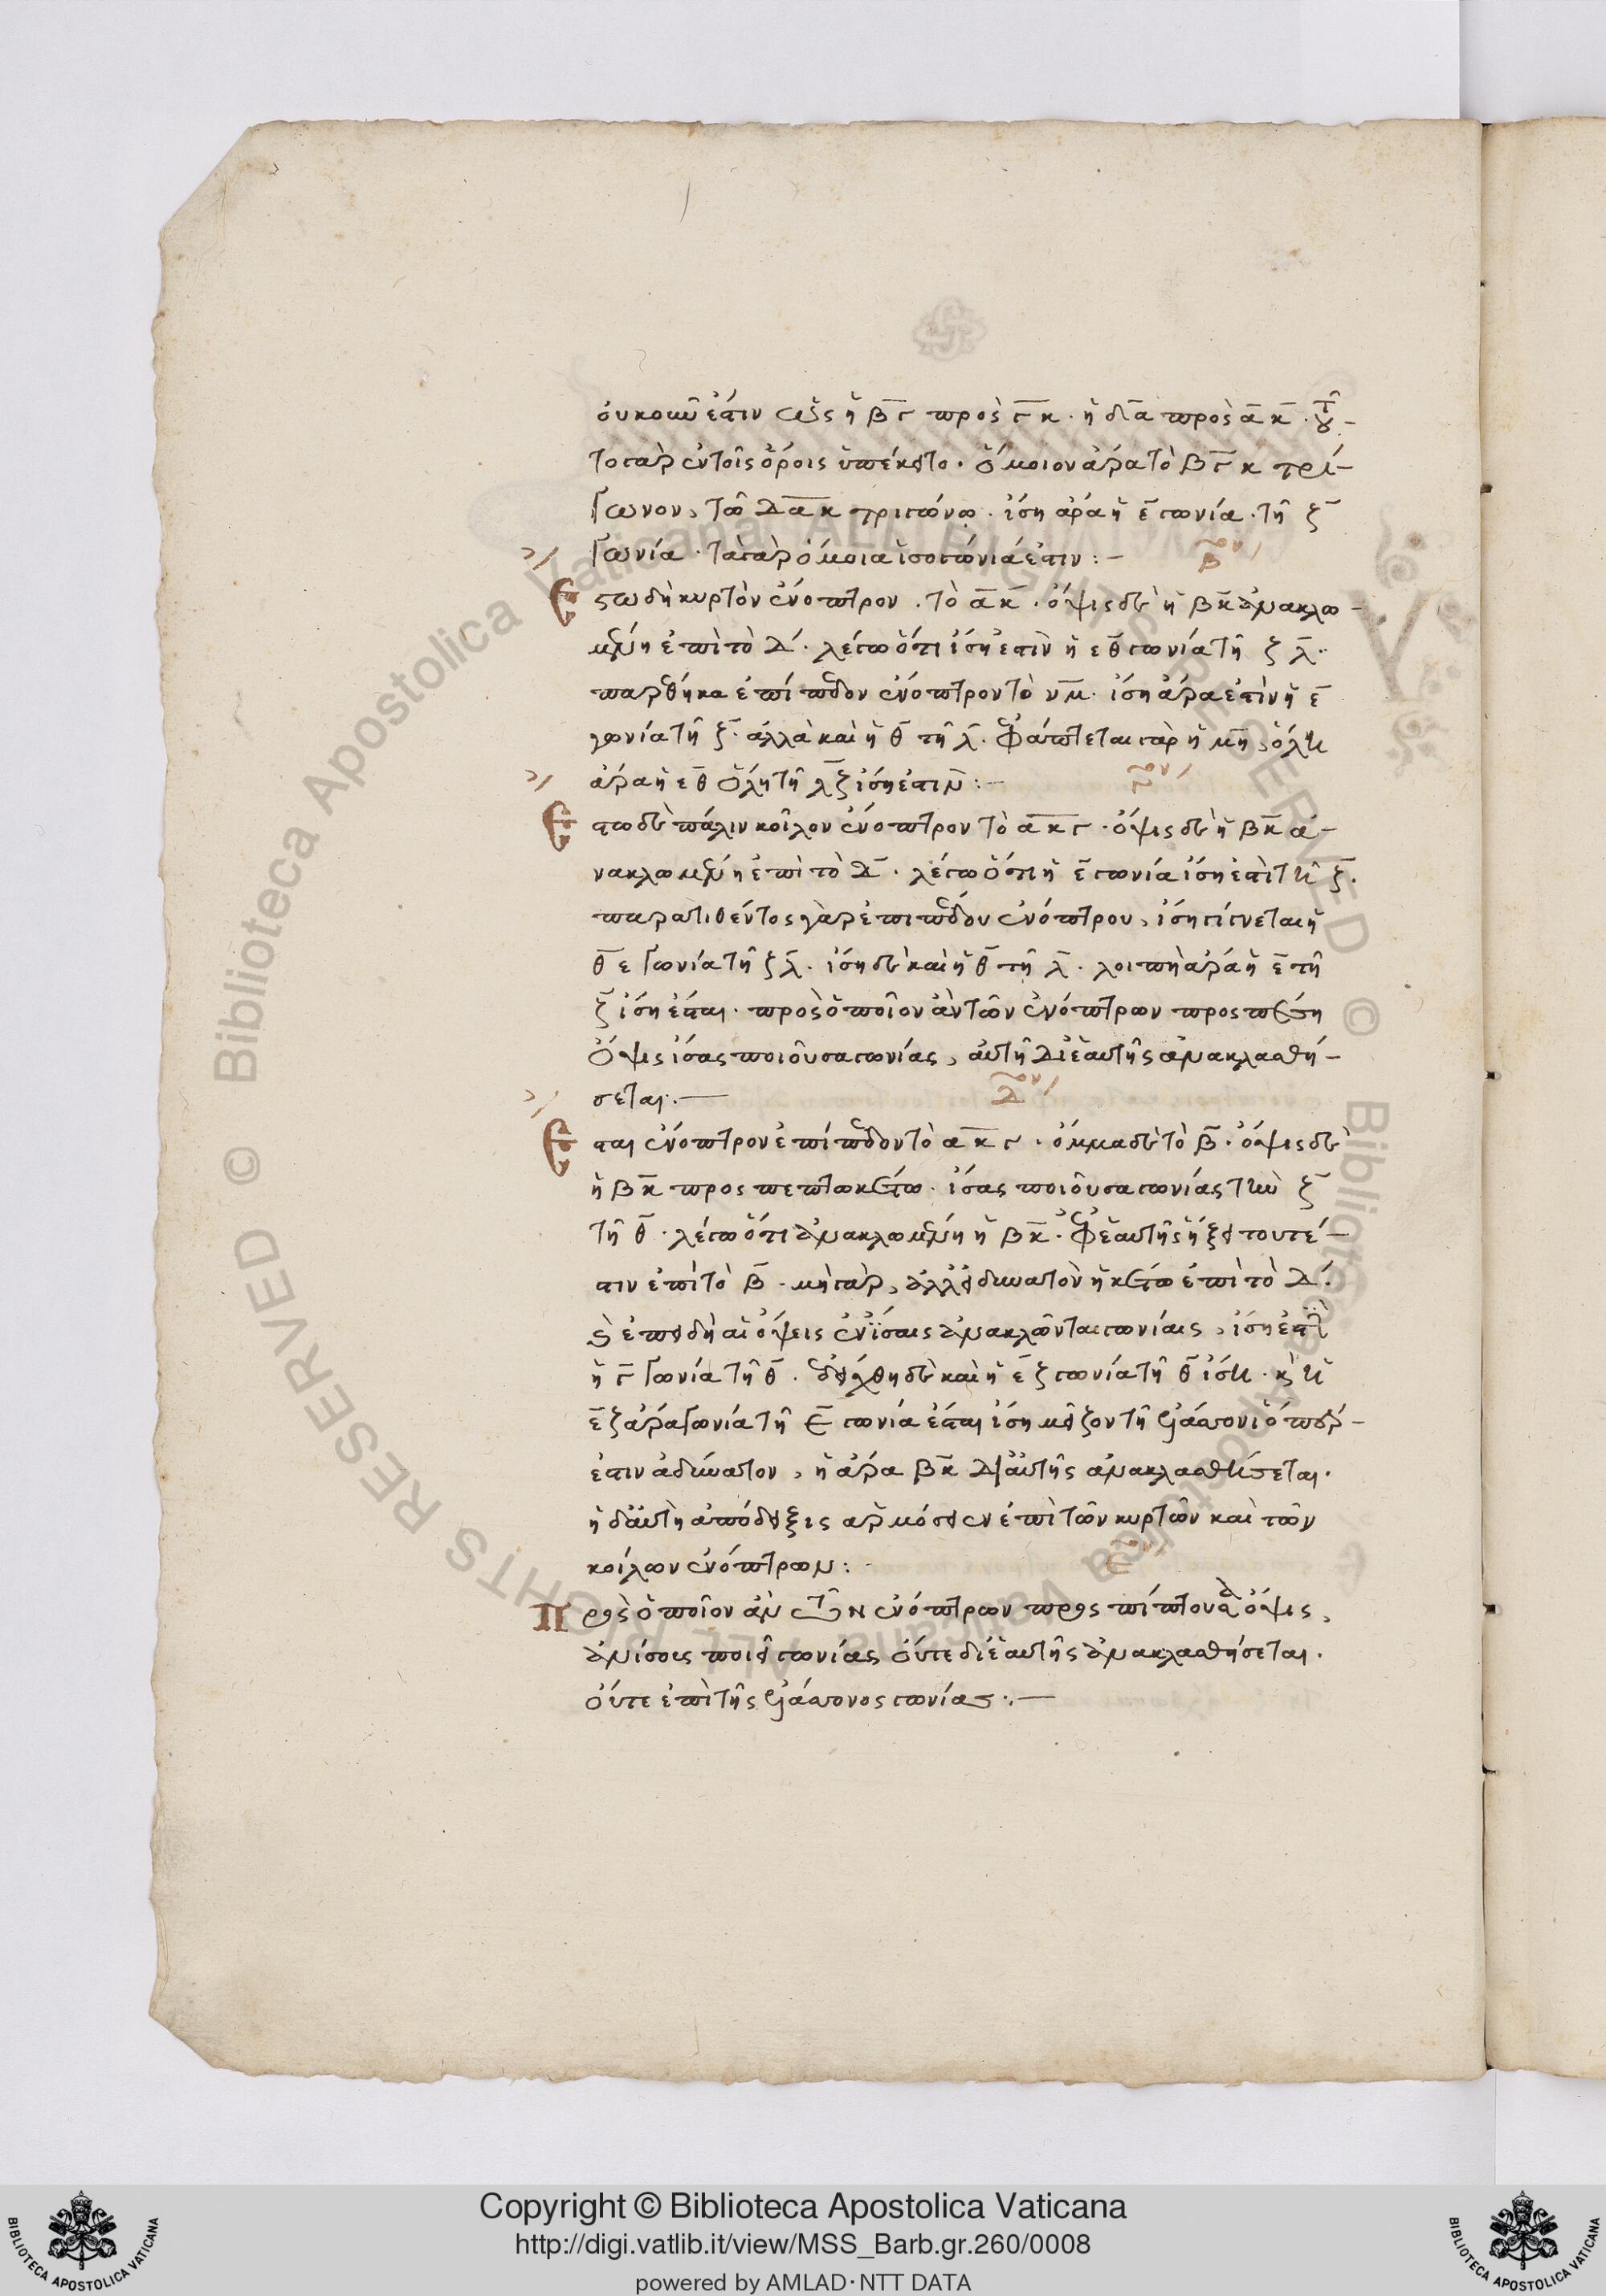 οὐκοῦν ἐστιν ὡς ἡ βγ πρὸς γκ. ἡ δα πρὸς ακ. τοῦ-
το γὰρ ἐν τοῖς ὅροις ὑπέκειτο. ὅμοιον ἄρα τὸ βγκ τρί-
γωνον, τῶ δακ τριγώνω. ἴση ἄρα ἡ ε γωνία. τῆ ζ
γωνία. τὰ γὰρ ὅμοια ἰσογώνιά ἐστιν:-
βον
Ἔστω δὴ κυρτὸν ἔνοπτρον. τὸ ακ. ὄψις δὲ ἡ βκ ἀνακλω-
μένη ἐπὶ τὸ δ. λέγω ὅτι ἴση ἐστὶν ἡ εθ γωνία τῆ ζλ.
παρέθηκα ἐπίπεδον ἔνοπτρον τὸ νμ. ἴση ἄρα ἐστὶν ἡ ε
γωνία τῆ ζ. ἀλλὰ καὶ ἡ θ τῆ λ. ἐφάπτεται γὰρ ἡ μν, ὅλη
ἄρα ἡ εθ ὅλη τῆ λζ ἴση ἐστιν:-
γον
Ἔστω δὲ πάλιν κοῖλον ἔνοπτρον τὸ ακγ. ὄψις δὲ ἡ βκ ἀ-
νακλωμένη ἐπὶ τὸ δ. λέγω ὅτι ἡ ε γωνία ἴση ἐστὶ τῆ ζ.
παρατιθέντος γὰρ ἐπιπέδου ἐνόπτρου, ἴση γίγνεται ἡ
θε γωνία τῆ ζλ. ἴση δὲ καὶ ἡ θ τῆ λ. λοιπὴ ἄρα ἡ ε τῆ
ζ ἴση ἔσται. πρὸς ὁποῖον ἂν τῶν ἐνόπτρων προσπέση
ὄψις ἴσας ποιοῦσα γωνίας, αὐτὴ δι' ἑαυτῆς ἀνακλασθή-
σεται.-
δον
Ἔσται ἔνοπτρον ἐπίπεδον τὸ ακγ. ὄμμα δὲ τὸ β. ὄψις δὲ
ἡ βκ προσπεπτωκέτω. ἴσας ποιοῦσα γωνίας τὴν ζ
τῆ θ. λέγω ὅτι ἀνακλωμένη ἡ βκ. ἐφ' ἑαυτῆς ἥξει τουτέ-
στιν ἐπὶ τὸ β. μὴ γὰρ, ἀλλ' εἰ δυνατὸν ἡκέτω ἐπὶ τὸ δ.
καὶ ἐπειδὴ αἱ ὄψεις ἐν ἴσαις ἀνακλῶνται γωνίαις, ἴση ἐστὶ
ἡ γ γωνία τῆ θ. ἐδείχθη δὲ καὶ ἡ εζ γωνία τῆ θ ἴση. καὶ ἡ
εζ ἄρα γωνία τῆ ε γωνία ἔσται ἴση μείζον τῆ ἐλάσσονι ὅπερ-
ἐστιν ἀδύνατον, ἡ ἄρα βκ δι' αὑτῆς ἀνακλασθήσεται.
ἡ δ' αὐτὴ ἀπόδειξις ἁρμόσειεν ἐπὶ τῶν κυρτῶν καὶ τῶν
κοίλων ἐνόπτρων:-
εον
Πρὸς ὁποῖον ἂν τῶν ἐνόπτρων προσπίπτουσα ὄψις,
ἀνίσους ποιεῖ γωνίας οὔτε δι' ἑαυτῆς ἀνακλασθήσεται.
οὔτε ἐπὶ τῆς ἐλάσσονος γωνίας:.-
Copyright © Biblioteca Apostolica Vaticana
http://digi.vatlib.it/view/MSS_Barb.gr.260/0008
powered by AMLAD·NTT DATA
BIBLIOTECA APOSTOLICA VATICANA
BIBLIOTECA APOSTOLICA VATICANA